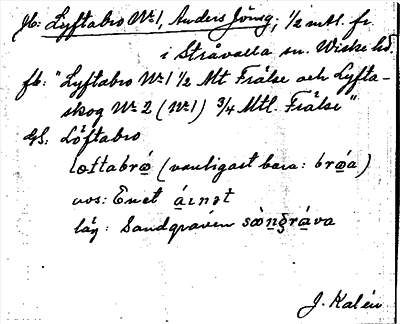 Jb: Lyftabro No 1, Anders Jönsg; 1/2 mtl. fr.
i Stråvalla sn. Wiske hd.
fb: "Lyftabro No 1 1/2 Mt Frälse och Lyfta-
skog No 2 (No 1) 3/4 Mtl. Frälse"
GS: Löftabro
(vanligast bara:
vos: Enet
läg: Sandgraven
J. Kalén